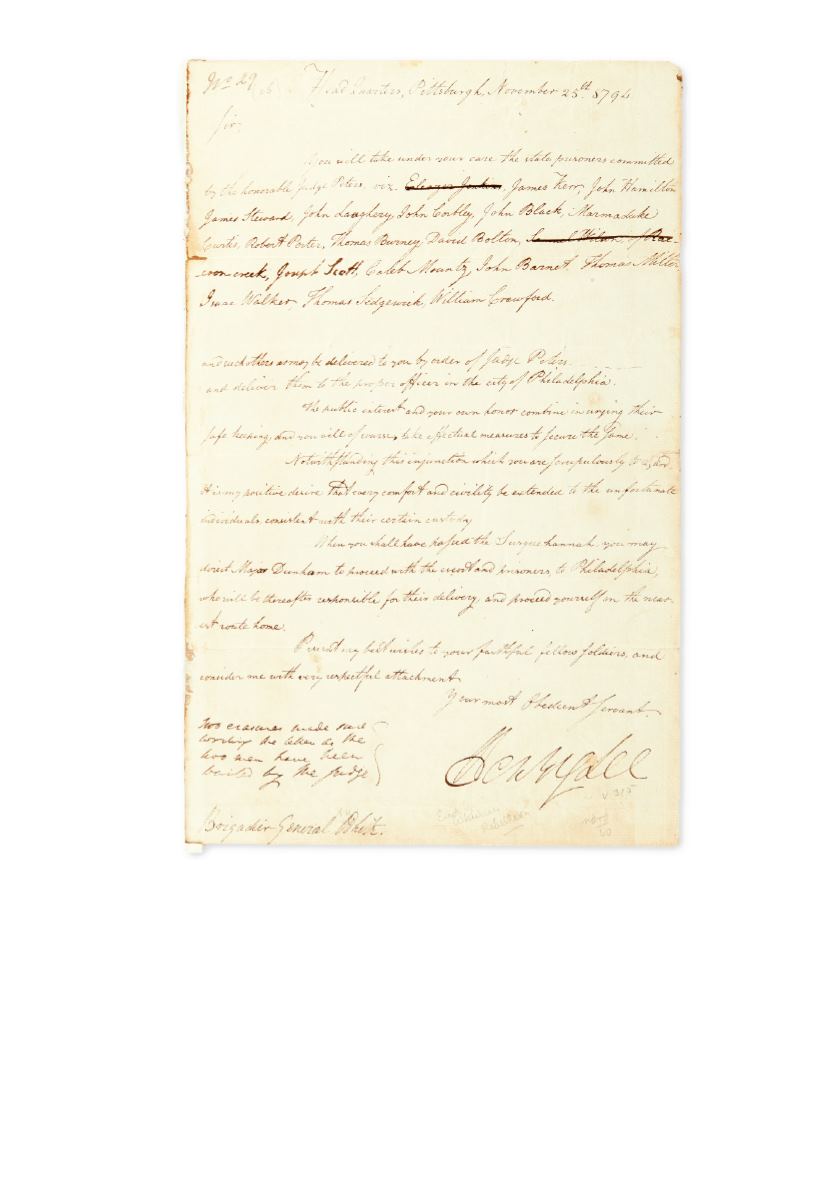 No 29
Head Quarters, Pittsburgh, November 25th 1794
Sir,
You will take under your care the state prisoners committed
by the honorable Judge Peters, viz. Eleazer Jenkins, James Kerr, John Hamilton
James Steward, John Laughery, John Corbley, John Black, Marmaduke
Curtis, Robert Porter, Thomas Burney, David Bolton, Samuel Wilson, of Rac-
coon creek, Joseph Scott, Caleb Mountz, John Barnet, Thomas Miller
Isaac Walker, Thomas Sedgewick, William Crawford.
and such others as may be delivered to you by order of Judge Peters
and deliver them to the proper officer in the city of Philadelphia.
The public interest and your own honor combine in urging their
safe keeping, and you will of course, take effectual measures to secure the same.
Notwithstanding this injunction which you are scrupulously to
it is my positive desire that every comfort and civility be extended to the unfortunate
individuals, consistent with their certain custody
When you shall have passed the Susquehannah, you may
direct Major Dunham to proceed with the escort and prisoners, to Philadelphia,
who will be thereafter responsible for their delivery, and proceed yourself on the near-
est route home.
Present my best wishes to your faithful fellow soldiers, and
consider me with very respectful attachment
Your most Obedient Servant.
Henry Lee
two erasures made since
writing the letter as the
two men have been
bailed by the Judge
Brigadier General White.
V 315
Whiskey
Rebellion